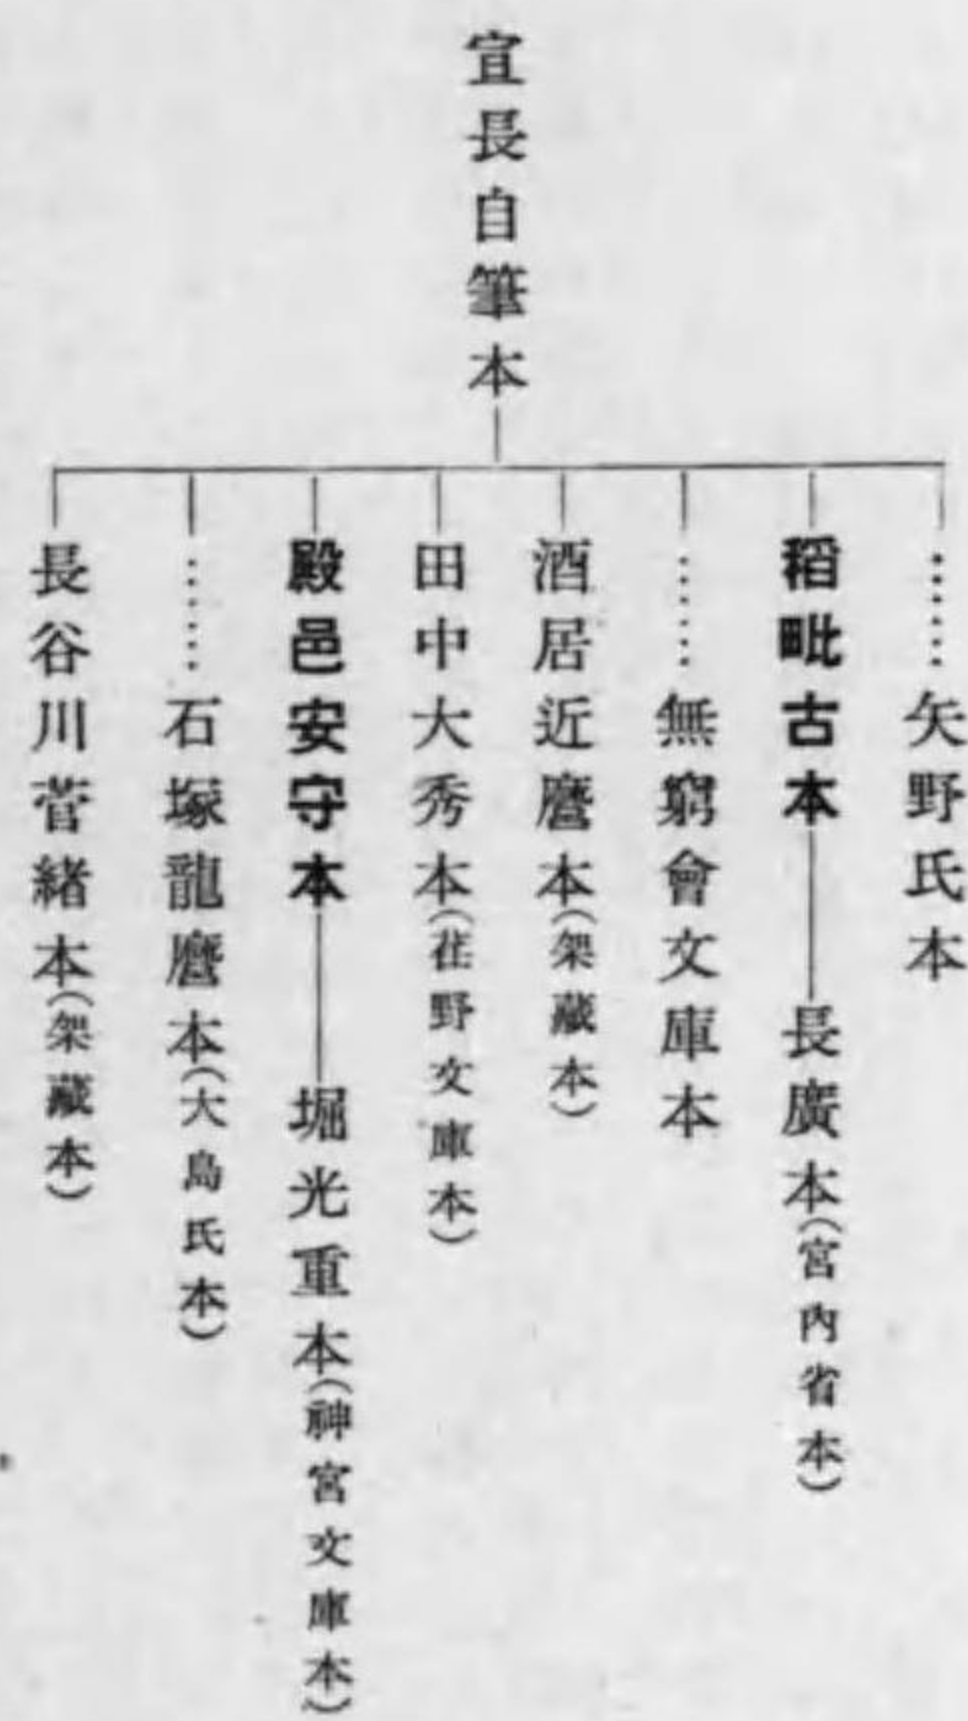 宣長自筆本
……矢野氏本
稻毗古本―長廣本(宮內省本)
……無窮會文庫本
酒居近麿本(架藏本)
田中大秀本(荏野文庫本)
殿邑安守本―堀光重本(神宮文庫本)
……石塚龍麿本(大島氏本)
長谷川菅緒本(架藏本)